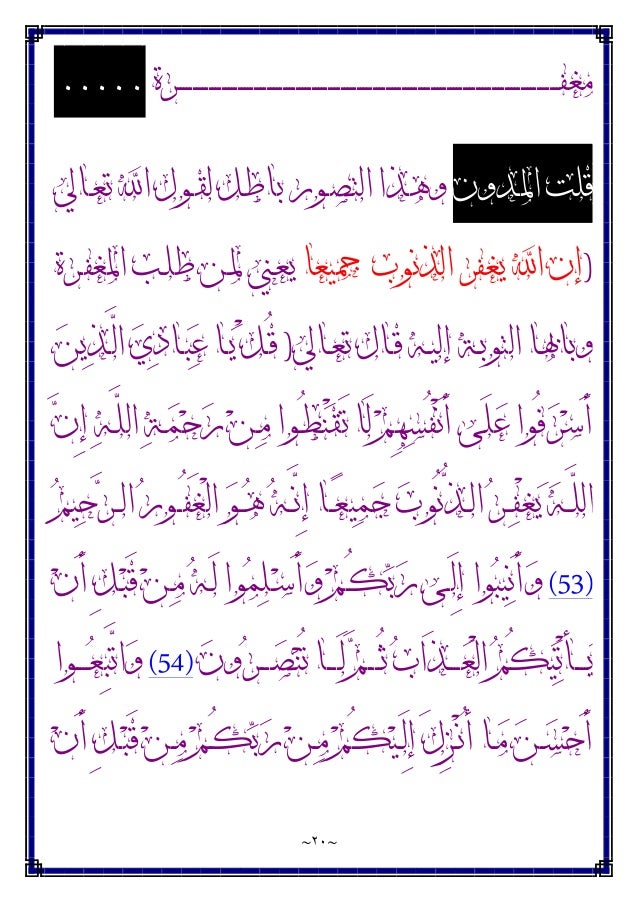 مغفـــــــــــــــــــــــــــــــــــــرة . . . . .
قلت المدون وهذا التصور باطل لقول الله تعالي
(إن الله يغفر الذنوب جميعا يعني لمن طلب المغفرة
وبابها التوبة إليه قال تعالي( قُلْ يَا عِبَادِيَ الَّذِينَ
أَسْرَفُوا عَلَى أَنْفُسِهِمْ لَا تَقْنَطُوا مِنْ رَحْمَةِ اللَّهِ إِنَّ
اللَّهَ يَغْفِرُ الذُّنُوبَ جَمِيعًا إِنَّهُ هُوَ الْغَفُورُ الرَّحِيمُ
(53) وَأَنِيبُوا إِلَى رَبِّكُمْ وَأَسْلِمُوا لَهُ مِنْ قَبْلِ أَنْ
يَأْتِيَكُمُ الْعَذَابُ ثُمَّ لَا تُنْصَرُونَ (54) وَاتَّبِعُوا
أَحْسَنَ مَا أُنْزِلَ إِلَيْكُمْ مِنْ رَبِّكُمْ مِنْ قَبْلِ أَنْ
~٢٠~